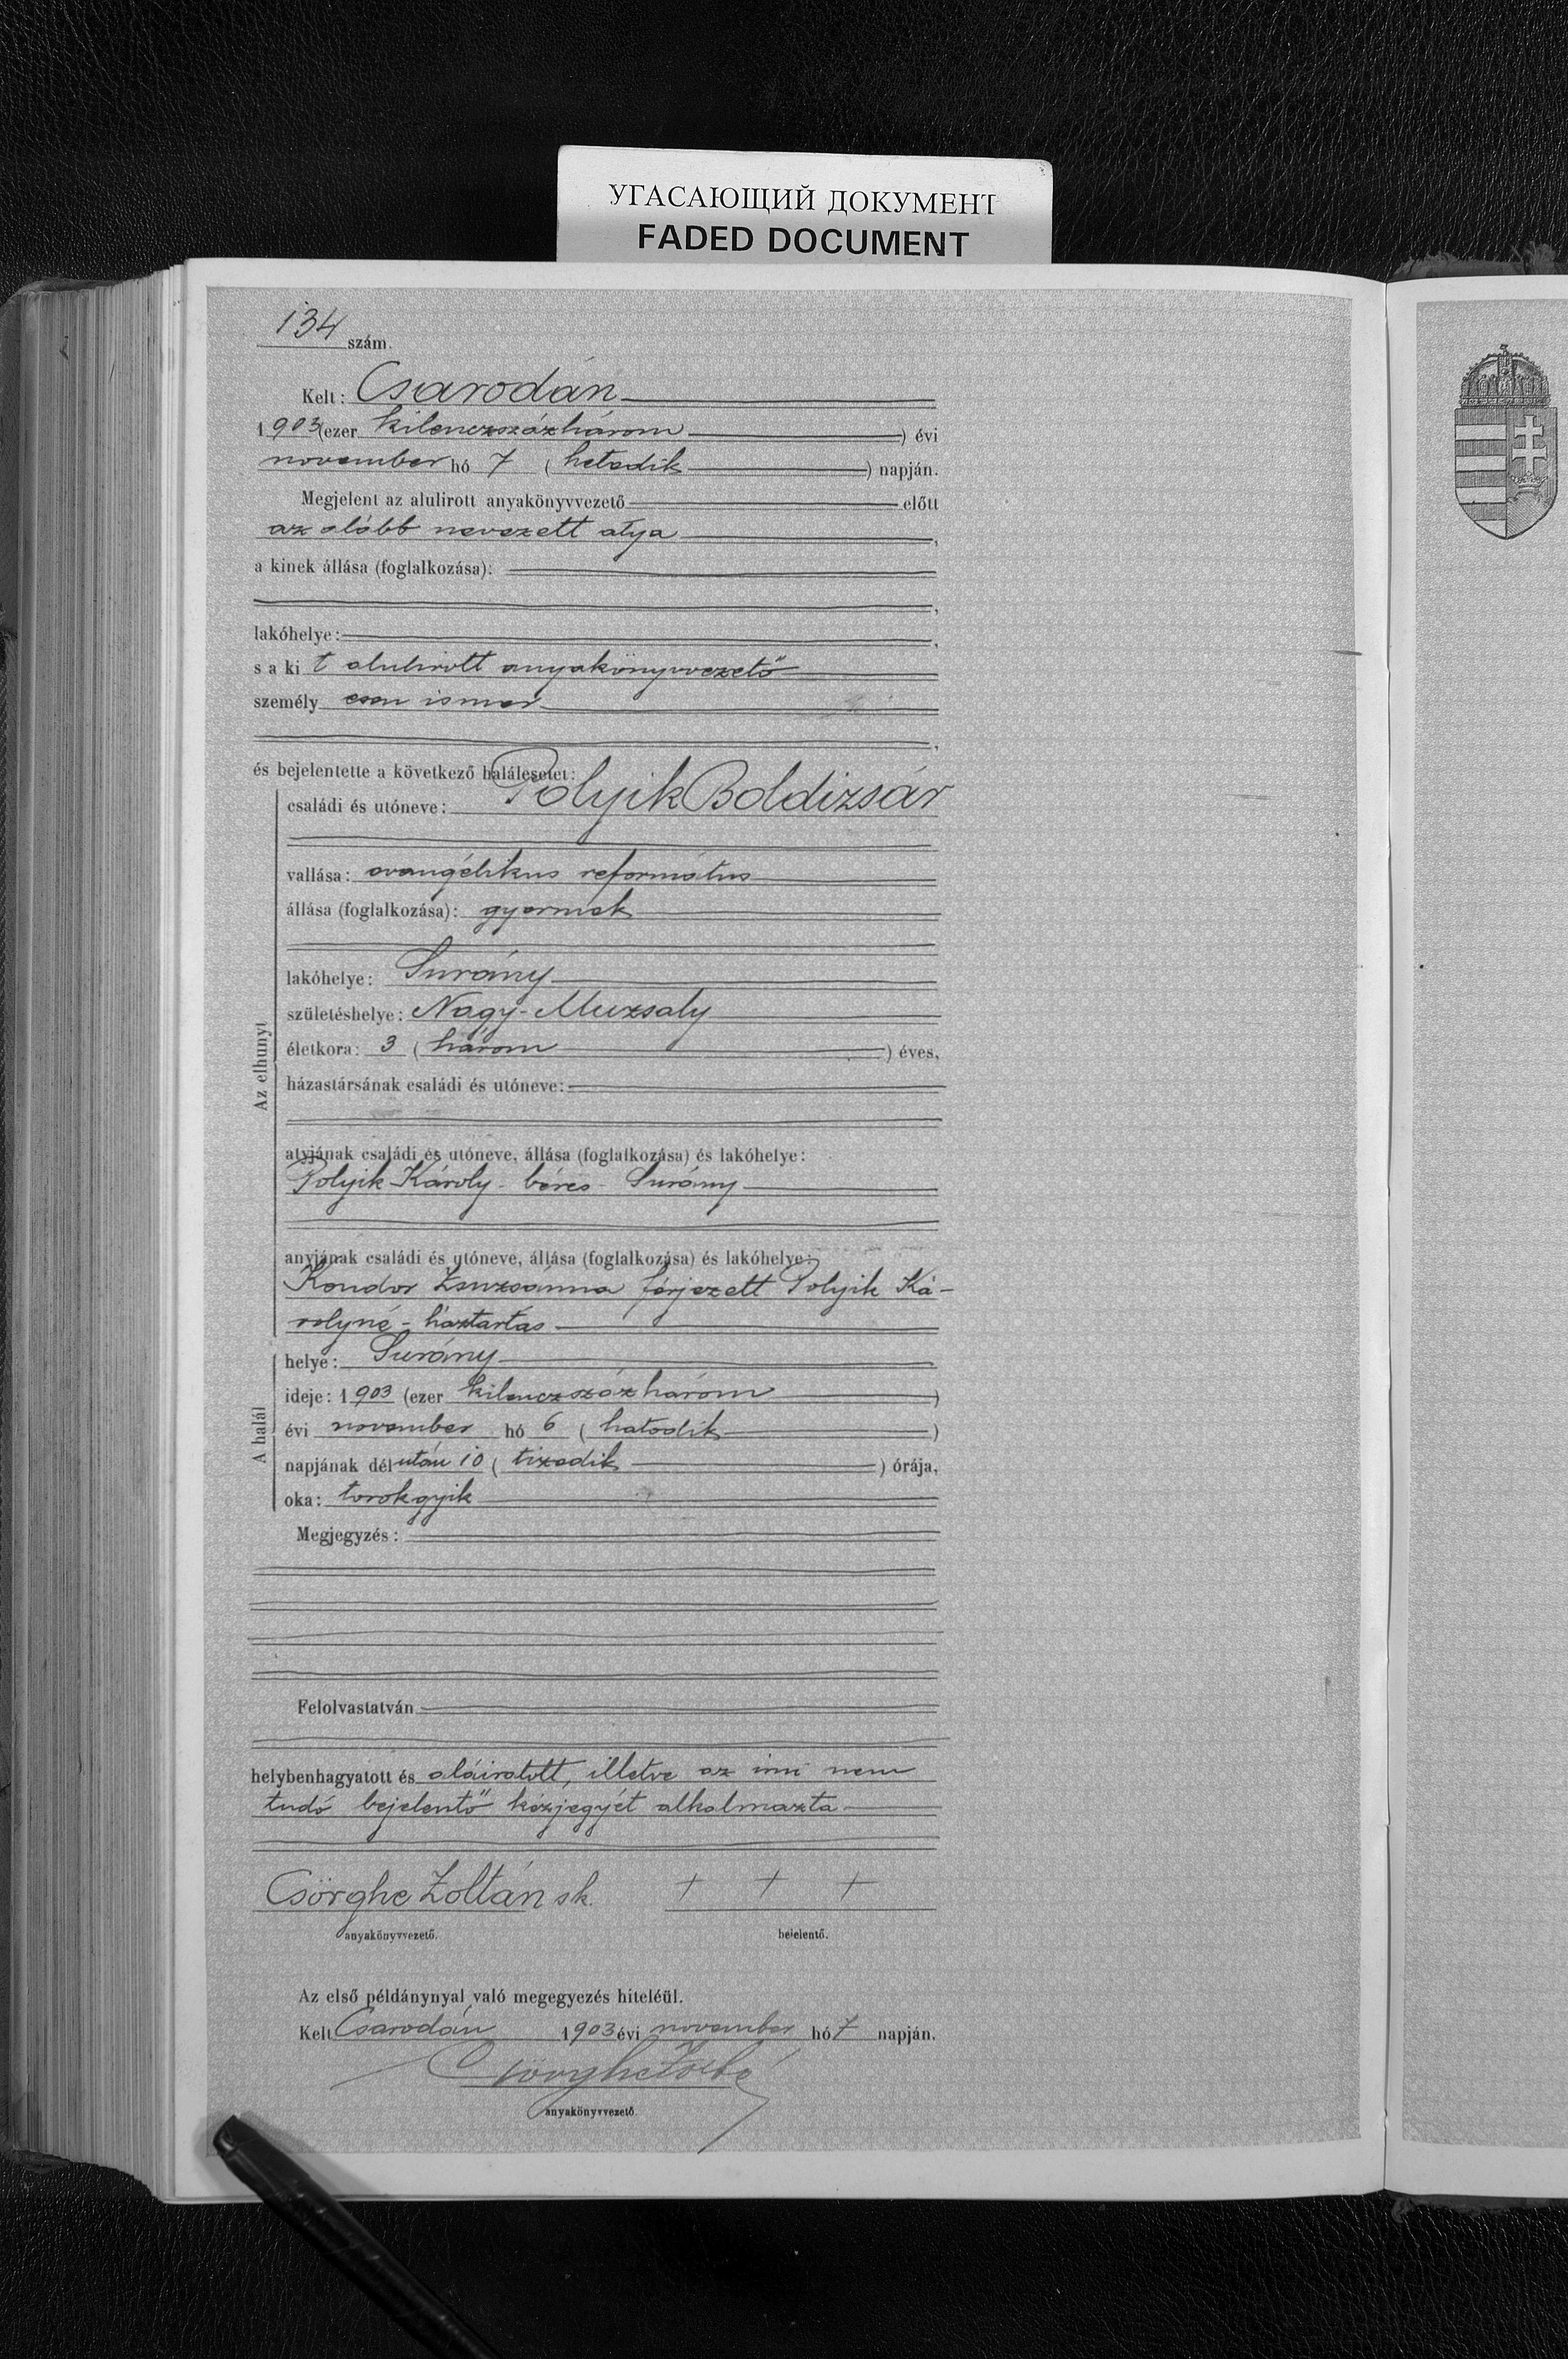 УГАСАЮЩИЙ ДОКУМЕНТ
FADED DOCUMENT
134 szám.
Kelt: Csarodán
1903 (ezer kilenczszázhárom) évi
november hó 7 (hetedik) napján.
Megjelent az alulirott anyakönyvvezető előtt
az alább nevezett atya,
a kinek állása (foglalkozása):
lakóhelye:
s a ki t alulirott anyakönyvvezető
személyesen ismer
és bejelentette a következő halálesetet:
családi és utóneve: Polyik Boldizsár
vallása: evangélikus református
állása (foglalkozása): gyermek
lakóhelye: Surány
születéshelye: Nagy-Muzsaly
életkora: 3 (három) éves,
Az elhunyt
házastársának családi és utóneve:
atyjának családi és utóneve, állása (foglalkozása) és lakóhelye:
Polyik Károly - béres - Surány
anyjának családi és utóneve, állása (foglalkozása) és lakóhelye:
Kondor Zsuzsánna férjezett Polyik Ká-
rolyné - háztartás
helye: Surány
ideje: 1903 (ezer kilenczszázhárom)
A halál
évi november hó 6 (hatodik)
napjának délután 10 (tizedik) órája,
oka: torokgyik
Megjegyzés:
Felolvastatván
helybenhagyatott és aláiratott, illetve az irni nem
tudó bejelentő kézjegyét alkalmazta
Csörghe Zoltán sk. + + +
anyakönyvvezető. bejelentő.
Az első példánynyal való megegyezés hiteléül.
Kelt Csarodán 1903 évi november hó 7 napján.
Csörghe
anyakönyvvezető.